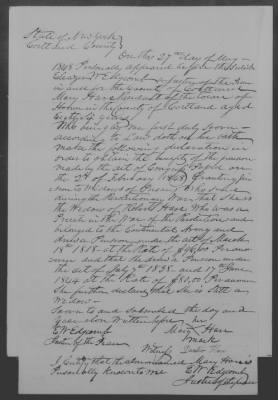 State of New York
Cortland County
On this 27th day of May
1848 Personally appeared before the
Eleazer W Edgcomb a Justice of the Peace
in and for the County of Cortland
Mary Harr resident of the town of
Homer in the County of Cortland aged
Eighty six years
Who being by me first duly sworn
according to Law doth on her oath
make the following declaration in
order to obtain the benefit of the pension
made by the act of Congress Passed on
the 2d of February 1848 Granting
Pension to Widows of Persons who served
during the Revolutionary War that She is
the Widow of who was a
Private in the War of the Revolution and
belonged to the Continental Army and
drew a Pension under the act of March
18th 1818 at the Rate of $96,00 Per annum
and that she drew a Pension under
the act of July 7th 1838 and 17th June
1844 at the Rate of $80,00 Per annum
She further declares that She is still a
Widow
Sworn to and Subscribed the day and
Year above Written before me
EW Edgcomb Mary Harr
Justice of the Peace mark
Witness
I Certify that the above named Mary Harr is
Personally known to me E W Edgcomb
Justice of the Peace